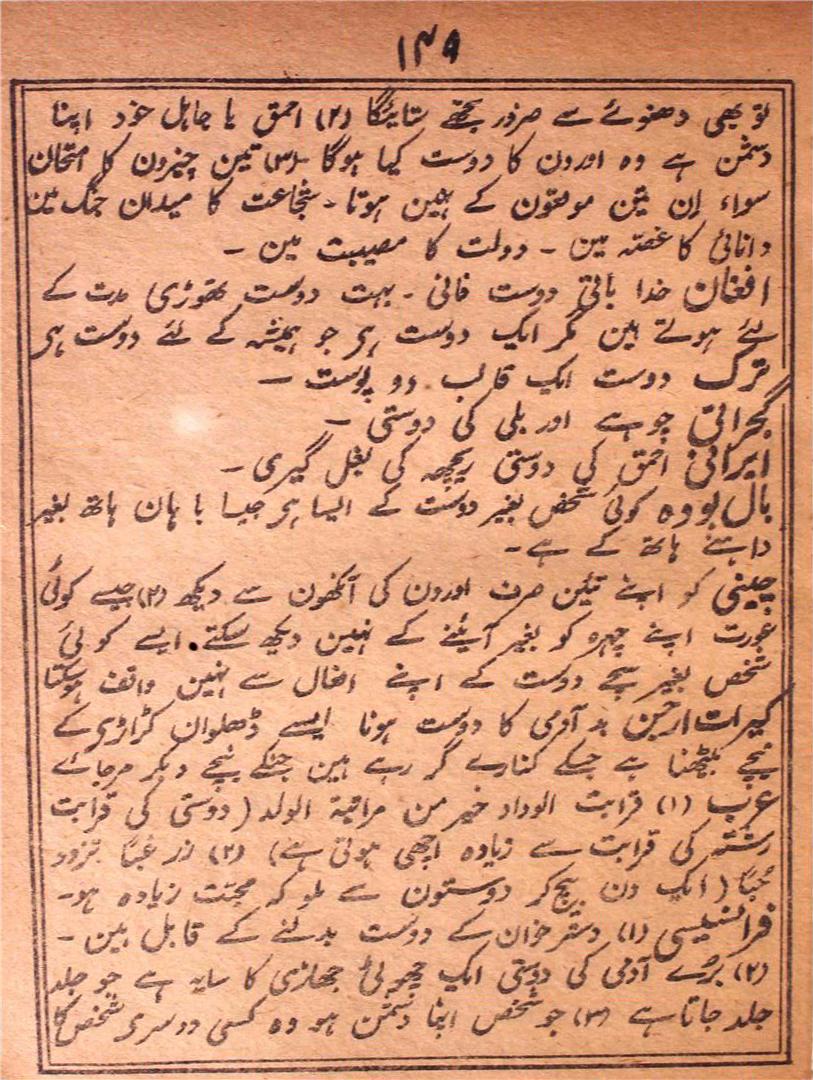 ۱۴۹
تو بھی دھنوئے سے ضرور تجھے ستائیگا (۲) احمق یا جاہل خود اپنا
دشمن ہے وہ اورون کا دوست کیا ہوگا (۳) تین چیزون کا امتحان
سواء اِن تین موقعون کے نہین ہوتا۔ شجاعت کا میدان جنگ مین
دانائی کا غصّہ مین ۔ دولت کا مصیبت مین ۔
افغان خدا باقی دوست فانی ۔ بہت دوست تھوڑی مدت کے
لئے ہوتے ہین مگر ایک دوست ہر جو ہمیشہ کے لئے دوست ہر
ترک دوست ایک قالب دو پوست ۔
گجراتی چوہے اور بلی کی دوستی ۔
ایرانی احمق کی دوستی ریچھ کی بغل گیری ۔
بال بووہ کوئی شخص بغیر دوست کے ایسا ہر جیسا باہان ہاتھ بغیر
داہنے ہاتھ کے ہے ۔
چینی کو اپنے تئین صرف اورون کی آنکھون سے دیکھ (۲) جیسے کوئی
عورت اپنے چہرہ کو بغیر آئینے کے نہین دیکھ سکتے ۔ ایسے کوئی
شخص بغیر سچے دوست کے اپنے افعال سے نہین واقف ہوسکتا
کیرات ارجن بد آدمی کا دوست ہونا ایسے ڈھلوان کڑاڑی کے
نیچے بیٹھنا ہے جسکے کنارے گر رہے ہین جنکے نیچے دبکر مرجاے
عرب (۱) قرابت الوداد خیر من مراتبۃ الولد (دوستی کی قرابت
رشتہ کی قرابت سے زیادہ اچھی ہوتی ہے) (۲) زر غبّا تزدد
حُبّا (ایک دن بیچ کر دوستون سے ملو کہ محبّت زیادہ ہو۔
فرانسیسی (۱) دسترخوان کے دوست بدلنے کے قابل ہین ۔
(۲) بڑے آدمی کی دوستی ایک چھوٹی جھاڑی کا سایہ ہے جو جلد
جلد جاتا ہے (۳) جو شخص اپنا دشمن ہو وہ کسی دوسری شخص کا